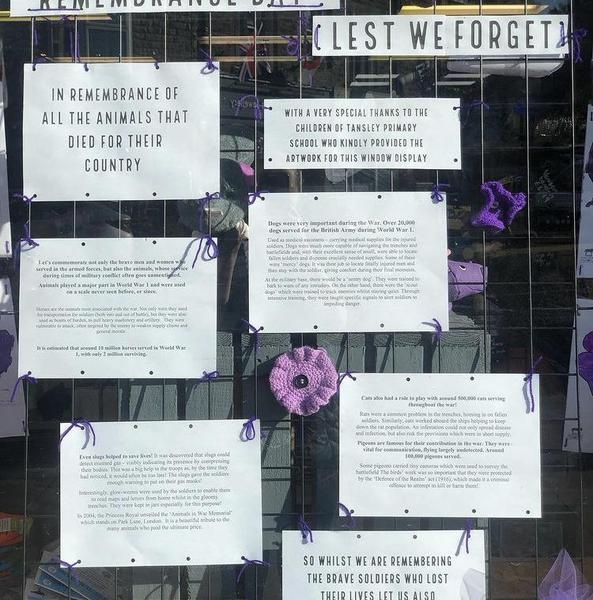 REMEMBRANCE DAY
LEST WE FORGET
IN REMEMBRANCE OF
ALL THE ANIMALS THAT
DIED FOR THEIR
COUNTRY
WITH A VERY SPECIAL THANKS TO THE
CHILDREN OF TANSLEY PRIMARY
SCHOOL WHO KINDLY PROVIDED THE
ARTWORK FOR THIS WINDOW DISPLAY
Let's commemorate not only the brave men and women who
served in the armed forces, but also the animals, whose service
during times of military conflict often goes unmentioned.
Animals played a major part in World War 1 and were used
on a scale never seen before, or since.
Horses are the animals most associated with the war. Not only were they used
for transportation for soldiers (both into and out of battle), but they were also
used as beasts of burden, to pull heavy machinery and artillery. They were
vulnerable to attack, often targeted by the enemy to weaken supply chains and
ground morale.
It is estimated that around 10 million horses served in World War
1, with only 2 million surviving.
Dogs were very important during the War. Over 20,000
dogs served for the British Army during World War 1.
Used as medical assistants – carrying medical supplies for the injured
soldiers. Dogs were much more capable of navigating the trenches and
battlefields and, with their excellent sense of smell, were able to locate
fallen soldiers and dispense crucially needed supplies. Some of these
were 'mercy' dogs. It was their job to locate fatally injured men and
then stay with the soldier, giving comfort during their final moments.
At the military base, there would be a 'sentry dog'. They were trained to
bark to warn of any intruders. On the other hand, there were the 'scout
dogs' which were trained to track enemies whilst staying quiet. Through
intensive training, they were taught specific signals to alert soldiers to
impeding danger.
Cats also had a role to play with around 500,000 cats serving
throughout the war!
Rats were a common problem in the trenches, homing in on fallen
soldiers. Similarly, cats worked aboard the ships helping to keep
down the rat population. An infestation could not only spread disease
and infection, but also risk the provisions which were in short supply.
Pigeons are famous for their contribution in the war. They were
vital for communication, flying largely undetected. Around
100,000 pigeons served.
Some pigeons carried tiny cameras which were used to survey the
battlefield The birds' work was so important that they were protected
by the 'Defence of the Realm' act (1916), which made it a criminal
offence to attempt to kill or harm them!
Even slugs helped to save lives! It was discovered that slugs could
detect mustard gas – visibly indicating its presence by compressing
their bodies. This was a big help to the troops as, by the time they
had noticed, it would often be too late! The slugs gave the soldiers
enough warning to put on their gas masks!
Interestingly, glow-worms were used by the soldiers to enable them
to read maps and letters from home whilst in the gloomy
trenches. They were kept in jars especially for this purpose!
In 2004, the Princess Royal unveiled the 'Animals in War Memorial'
which stands on Park Lane, London. It is a beautiful tribute to the
many animals who paid the ultimate price.
SO WHILST WE ARE REMEMBERING
THE BRAVE SOLDIERS WHO LOST
THEIR LIVES LET US ALSO